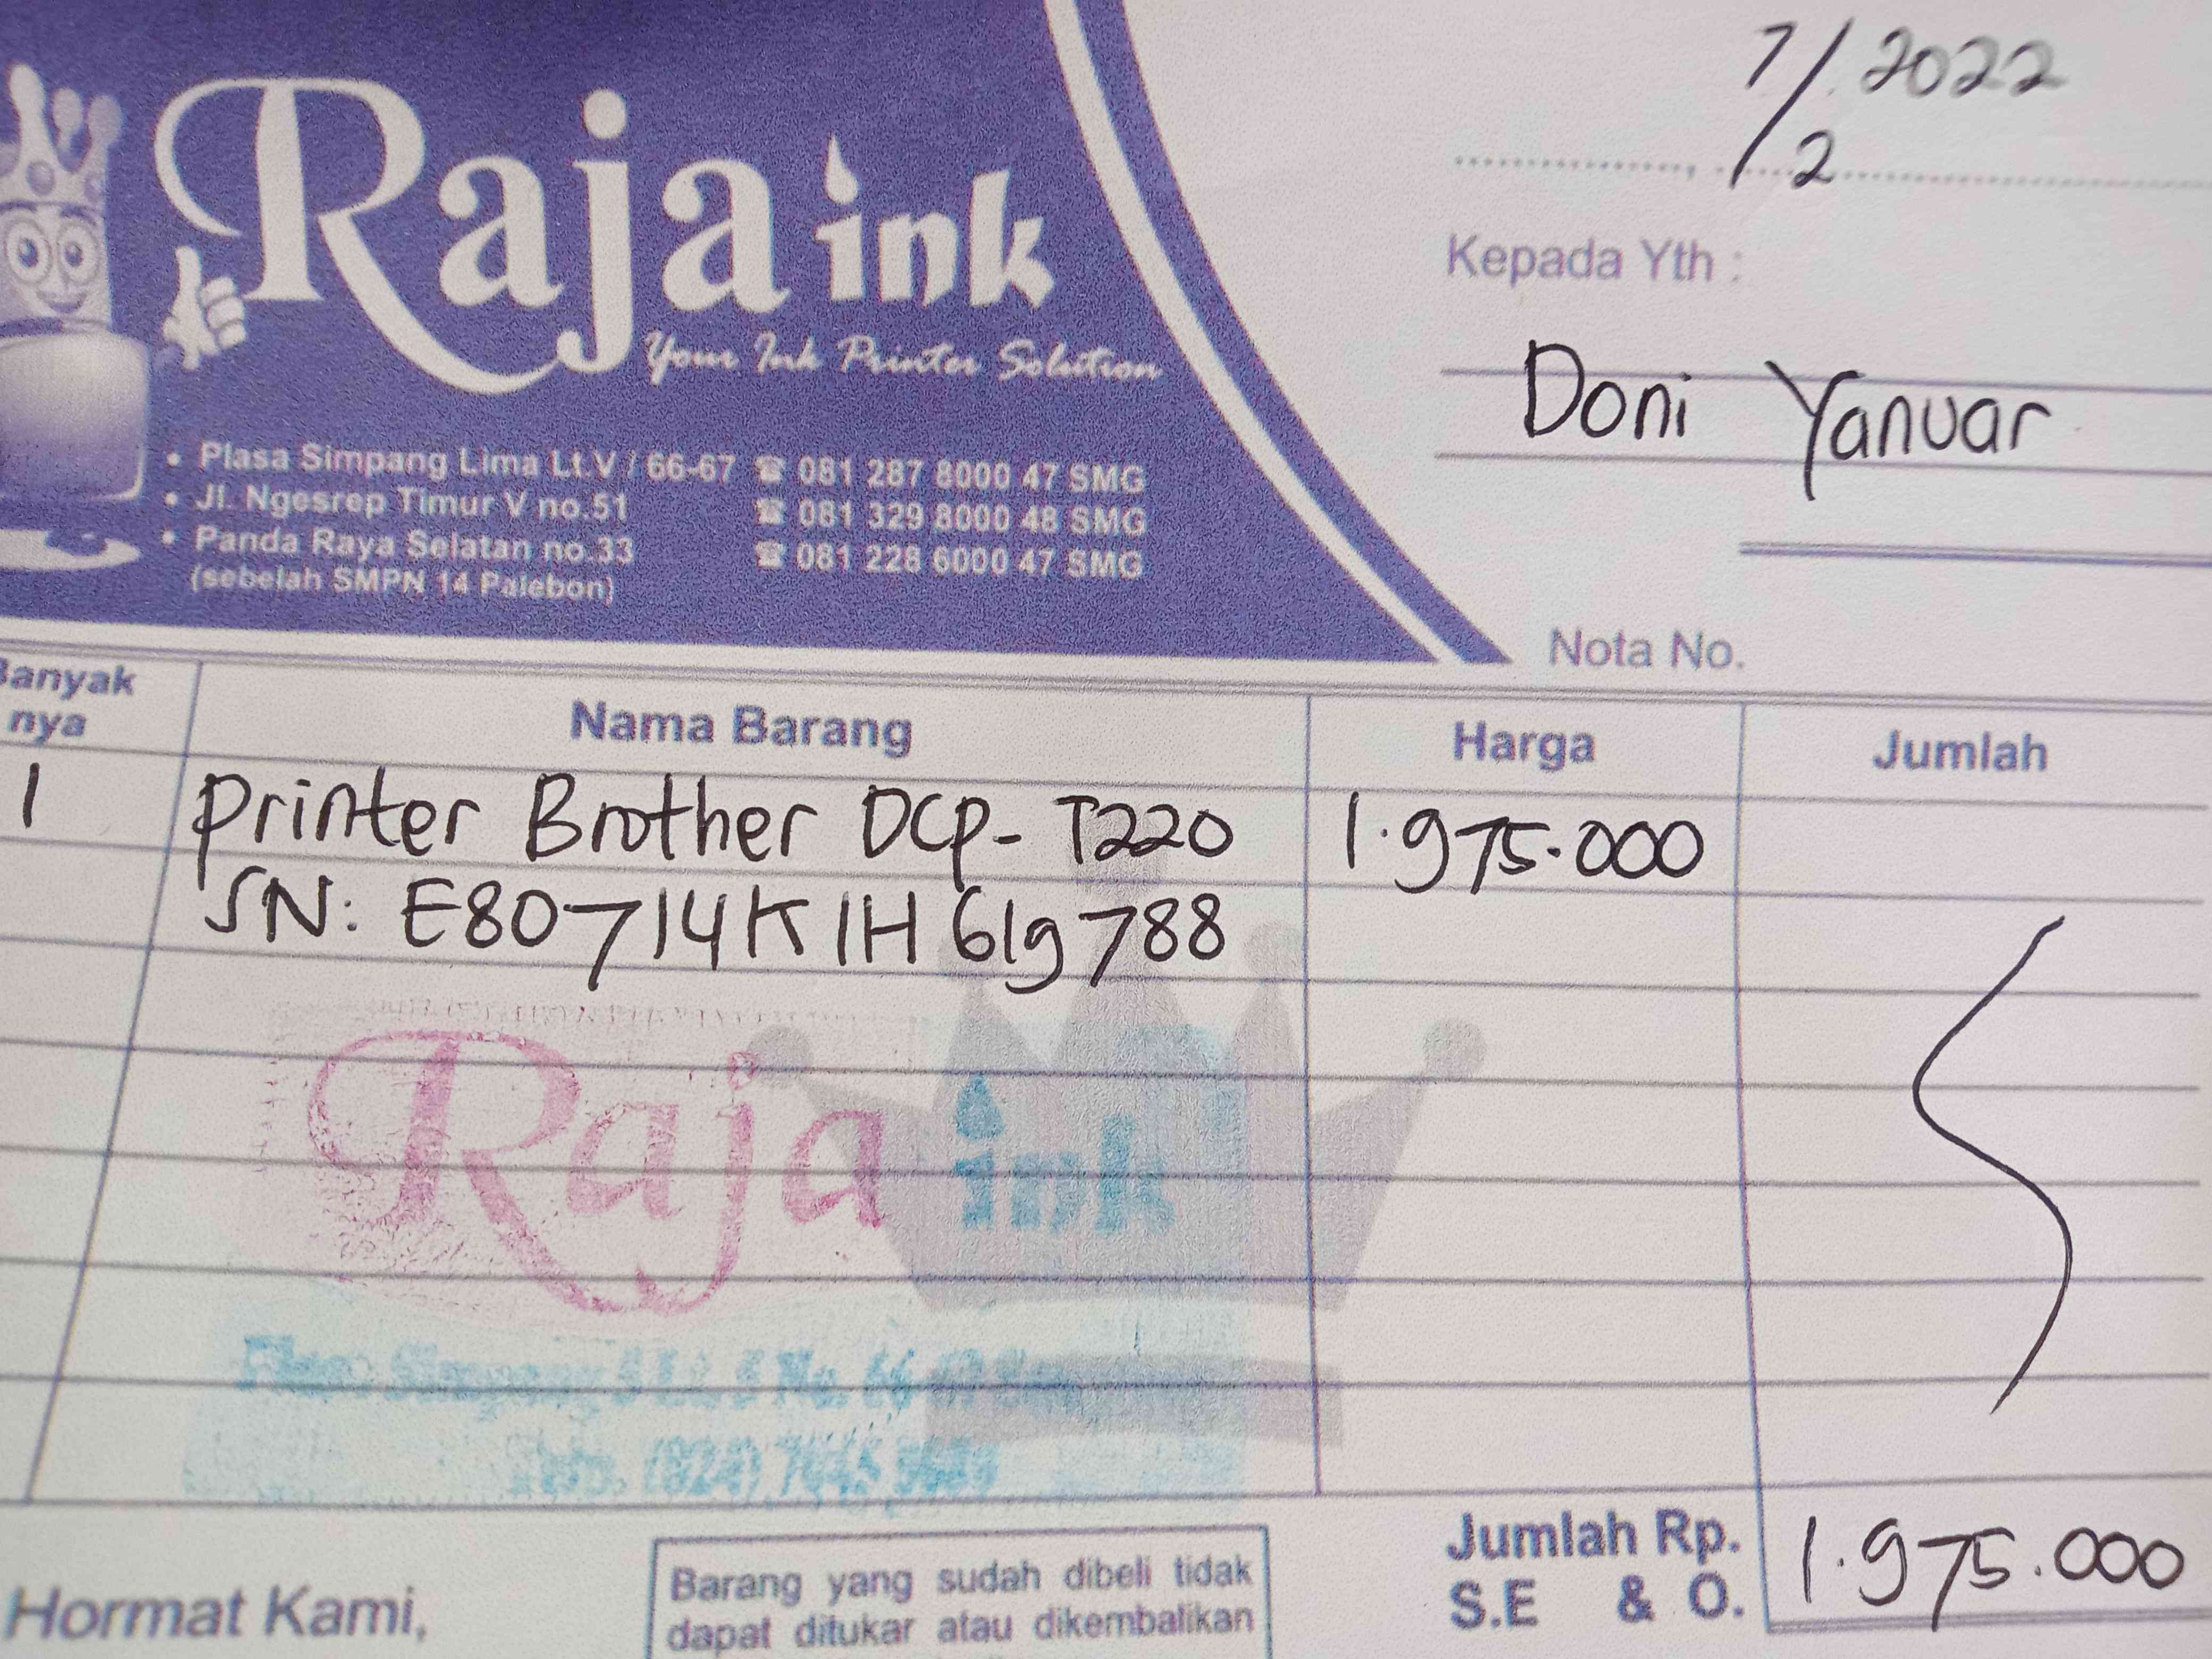 Raja ink
Your Ink Printer Solution
• Plasa Simpang Lima Lt.V / 66-67 ☎ 081 287 8000 47 SMG
• Jl. Ngesrep Timur V no.51 ☎ 081 329 8000 48 SMG
• Panda Raya Selatan no.33 ☎ 081 228 6000 47 SMG
(sebelah SMPN 14 Palebon)
7/2 2022
Kepada Yth :
Doni Yanuar
Nota No.
Banyak nya Nama Barang Harga Jumlah
1 Printer Brother DCP-T220 1.975.000
SN: E80714K1H619788
Raja ink
Jumlah Rp. 1.975.000
S.E & O.
Hormat Kami,
Barang yang sudah dibeli tidak
dapat ditukar atau dikembalikan